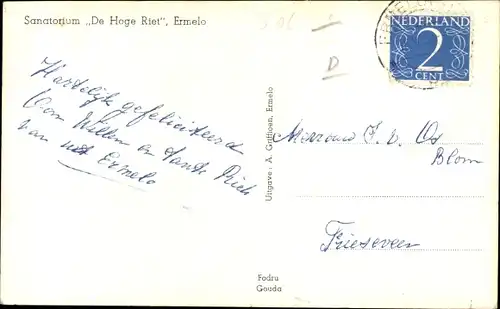 Sanatorium „De Hoge Riet", Ermelo
Hartelijk gefeliciteerd
Oom Willem en Tante Riek
van uit Ermelo
Uitgave: A. Griffioen, Ermelo
NEDERLAND
2
CENT
D
Mevrouw J. v. Os
Blom
Frieseveen
Fodru
Gouda